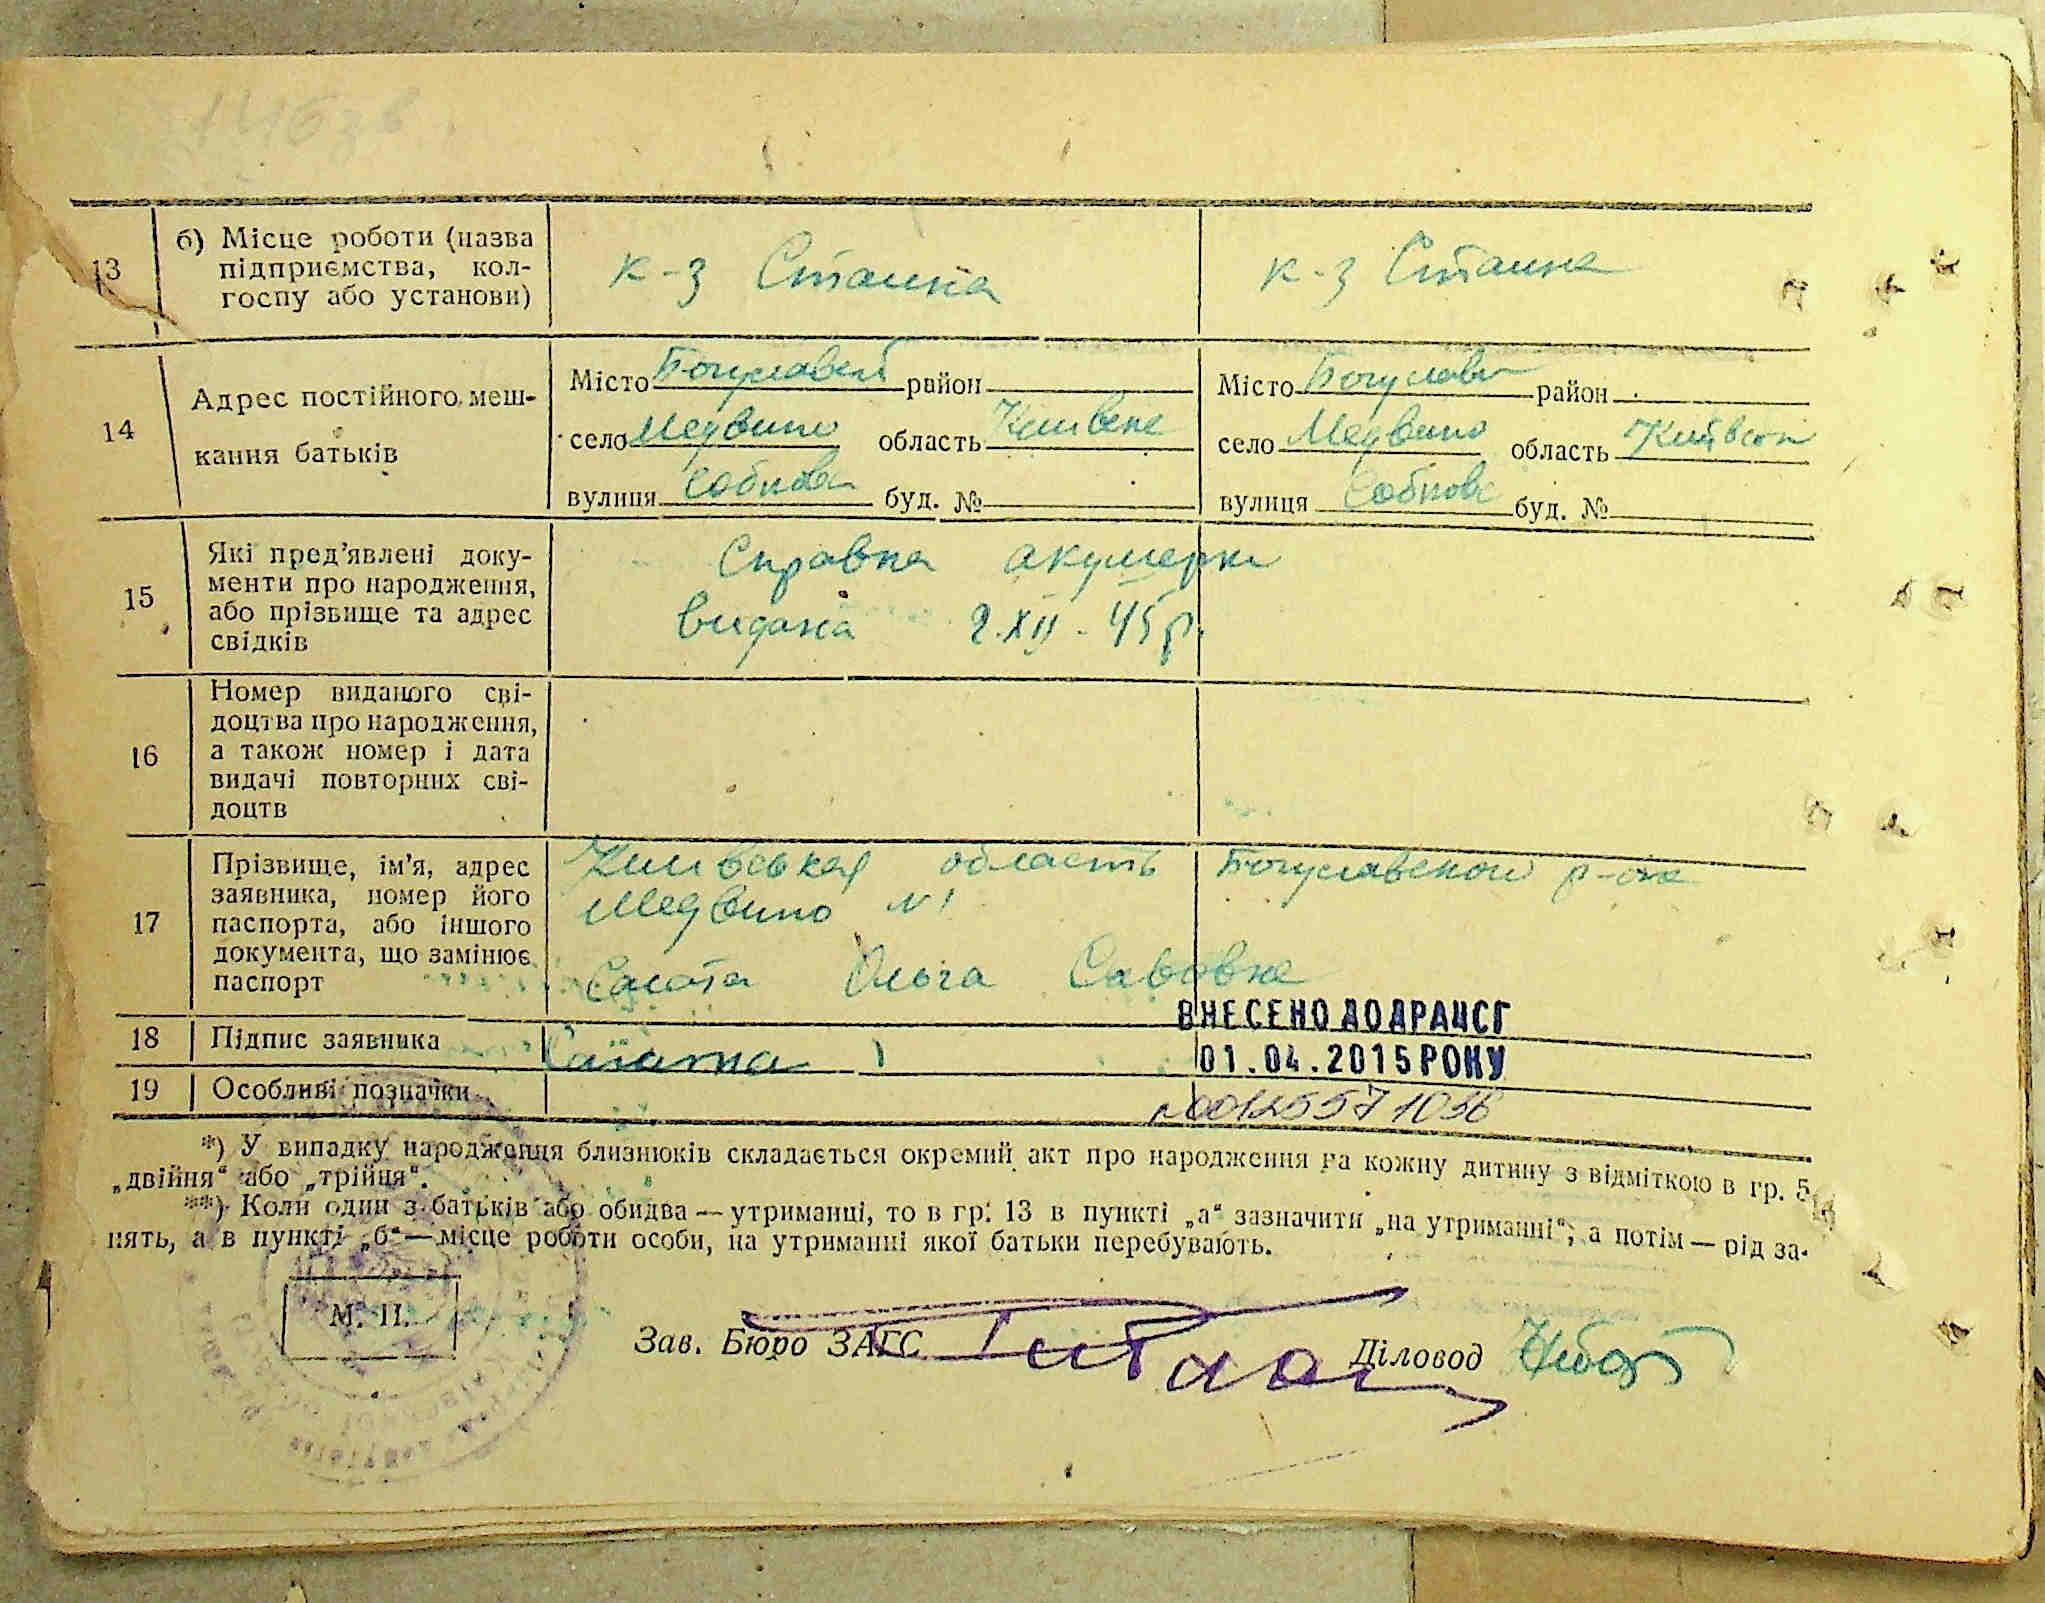 146 зв
13
б) Місце роботи (назва
підприємства, кол-
госпу або установи)
к-з Сталина
к-з Сталина
14
Адрес постійного меш-
кання батьків
Місто Богуславск район
село Медвино область Киивска
вулиця буд. №
Місто Богуслав район
село Медвино область Київскоі
вулиця буд. №
15
Які пред’явлені доку-
менти про народження,
або прізвище та адрес
свідків
Справка акушерки
видана 2.XII-45 р.
16
Номер виданого сві-
доцтва про народження,
а також номер і дата
видачі повторних сві-
доцтв
17
Прізвище, ім’я, адрес
заявника, номер його
паспорта, або іншого
документа, що замінює
паспорт
Киивськая область Богуславскои р-на
Медвино №1
Салата Ольга Савовна
ВНЕСЕНО ДО ДРАЦСГ
18 Підпис заявника
Салата
01.04.2015 РОКУ
19 Особливі позначки
№00125571036
*) У випадку народження близнюків складається окремий акт про народження на кожну дитину з відміткою в гр. 5
„двійня“ або „трійня“.
**) Коли один з батьків або обидва — утриманці, то в гр. 13 в пункті „а“ зазначити „на утриманні“, а потім — рід за-
нять, а в пункті „б“ — місце роботи особи, на утриманні якої батьки перебувають.
М. П.
Зав. Бюро ЗАГС
Діловод